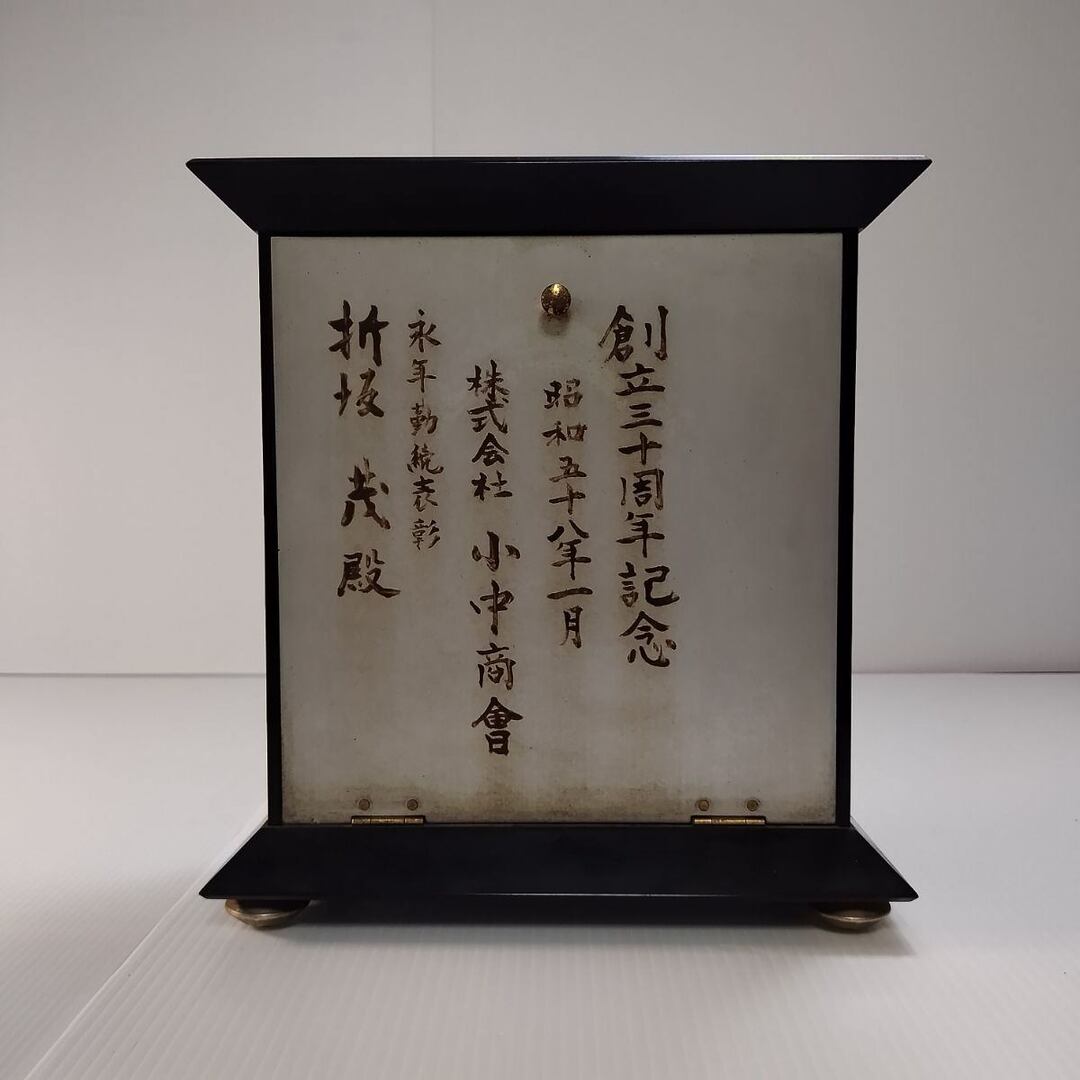 創立三十周年記念
昭和五十八年一月
株式会社 小中商會
永年勤続表彰
折坂 茂殿